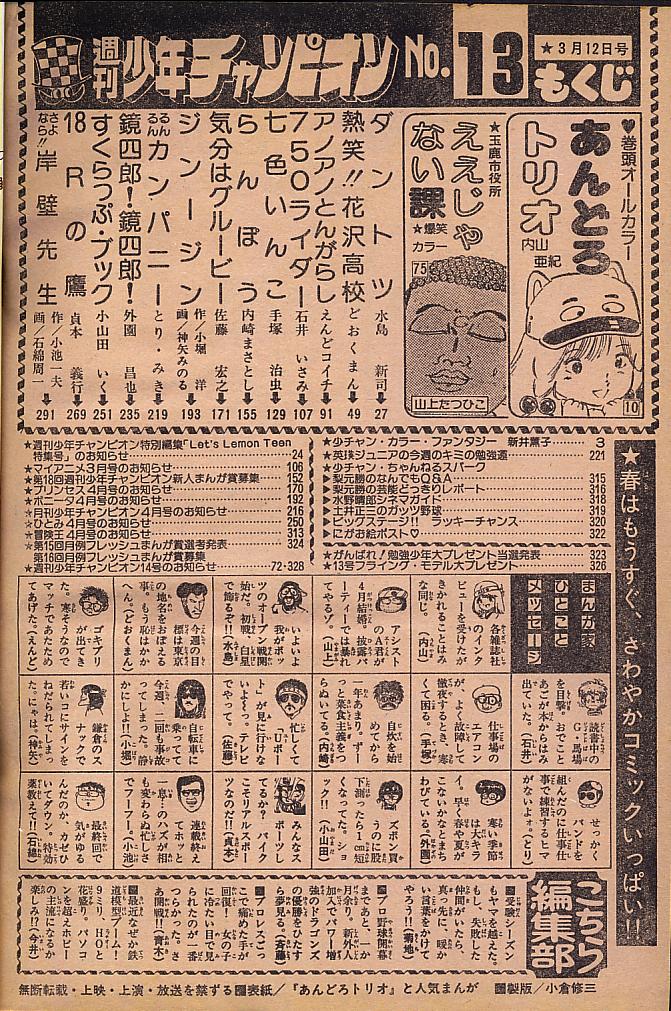 週刊少年チャンピオン No.13
★3月12日号
もくじ
♥巻頭オールカラー
あんどろトリオ
内山亜紀
10
★玉鹿市役所
ええじゃない課
★爆笑カラー
75
山上たつひこ
ダントツ 水島新司 27
熱笑!!花沢高校 どおくまん 49
アノアノとんがらし えんどコイチ 91
750ライダー 石井いさみ 107
七色いんこ 手塚治虫 129
らんぽう 内崎まさとし 155
気分はグルービー 佐藤宏之 171
ジンジン 作/小堀洋 画/神矢みのる 193
るんるんカンパニー とり・みき 219
鏡四郎!鏡四郎! 外園昌也 235
すくらっぷ・ブック 小山田いく 251
18Rの鷹 貞本義行 269
さよなら!!岸壁先生 作/小池一夫 画/石綿周一 291
★週刊少年チャンピオン特別編集「Let's Lemon Teen
特集号」のお知らせ 24
★マイアニメ3月号のお知らせ 106
★第18回週刊少年チャンピオン新人まんが賞募集 152
★プリンセス4月号のお知らせ 170
★ボニータ4月号のお知らせ 192
★月刊少年チャンピオン4月号のお知らせ 216
☆ひとみ4月号のお知らせ 250
★冒険王4月号のお知らせ 313
★第15回月例フレッシュまんが賞選考発表 324
第16回月例フレッシュまんが賞募集
★週刊少年チャンピオン14号のお知らせ 72・328
★少チャン・カラー・ファンタジー 新井薫子 3
★英揆ジュニアの今週のキミの勉強運 221
★少チャン・ちゃんねるスパーク
▶梨元勝のなんでもQ&A 315
▶梨元勝の芸能どっきりレポート 316
▶水野晴郎シネマナイト 318
▶土井正三のガッツ野球 319
▶ビッグステージ!! ラッキーチャンス 320
▶にがお絵ポスト♥ 322
★がんばれ!勉強少年大プレゼント当選発表 323
★13号フライング・モデル大プレゼント 326
★春はもうすぐ、さわやかコミックいっぱい!!
まんが家ひとことメッセージ
各雑誌社のインタビューを受けたが きかれることはみな同じ。(内山)
アシストのA君が4月結婚。披露パーティーでは暴れてやるゾ。(山上)
いよいよ我がボッツのオープン戦開始だ。初戦、白星で飾るぞ!!(水島)
今週の目標は東京の地名をおぼえる事。もう恥はかかへん。(どおくまん)
ゴキブリが出てきた。寒そうなのでマッチであたためてあげた。(えんど)
読書中のG・馬場を目撃。おでことあごが本からはみ出ていた。(石井)
仕事場のエアコンが、よく故障して徹夜するとき、寒くて困る。(手塚)
自炊を始めてから一年あまり。ずーっと菜食主義をつらぬいてる。(内崎)
忙しくて「U・ボート」が見に行けないよ〜っ。テレビでやって。(佐藤)
自転車に乗ってて今週、二回も事故ってしまった。静かにしよ!!(小堀)
鎌倉のスナックで若いコにサインをねだられてしまった。にゃは。(神矢)
せっかくバンドを組んだのに仕事仕事で練習するヒマがないよォ。(とり)
寒い季節は大キライ。早く春や夏がこないかなとまちわびている。(外園)
ズボン買うのに股下測ったら1cm短くなってた。ショック!!(小山田)
みんなスポーツしてるか?バイクこそリアルスポーツなのだ!!(貞本)
連載終えてホッと一息…のハズが相も変わらぬ忙しさでフーフー。(小池)
最終回で気がゆるんだのか、カゼひいてダウン。特効薬教えて!!(石綿)
こちら編集部
■受験シーズンもヤマを越えた。もし、失敗した仲間がいたら真っ先に、暖かい言葉をかけてやろう!!(菊地)
■プロ野球開幕まであと、一か月余り。新外人加入でパワー増強のドラゴンズの優勝をひたすら夢見る。(斉藤)
■プロレスごっこで痛めた手が回復!女の子に冷たい目で見られたのが一番つらかった。さあ開戦!!(青木)
■最近なぜか鉄道模型ブーム!9ミリ、HOと花盛り。パソコンを超えホビーの主流になるか楽しみ!?(今井)
無断転載・上映・上演・放送を禁ずる 表紙/『あんどろトリオ』と人気まんが 製版/小倉修三